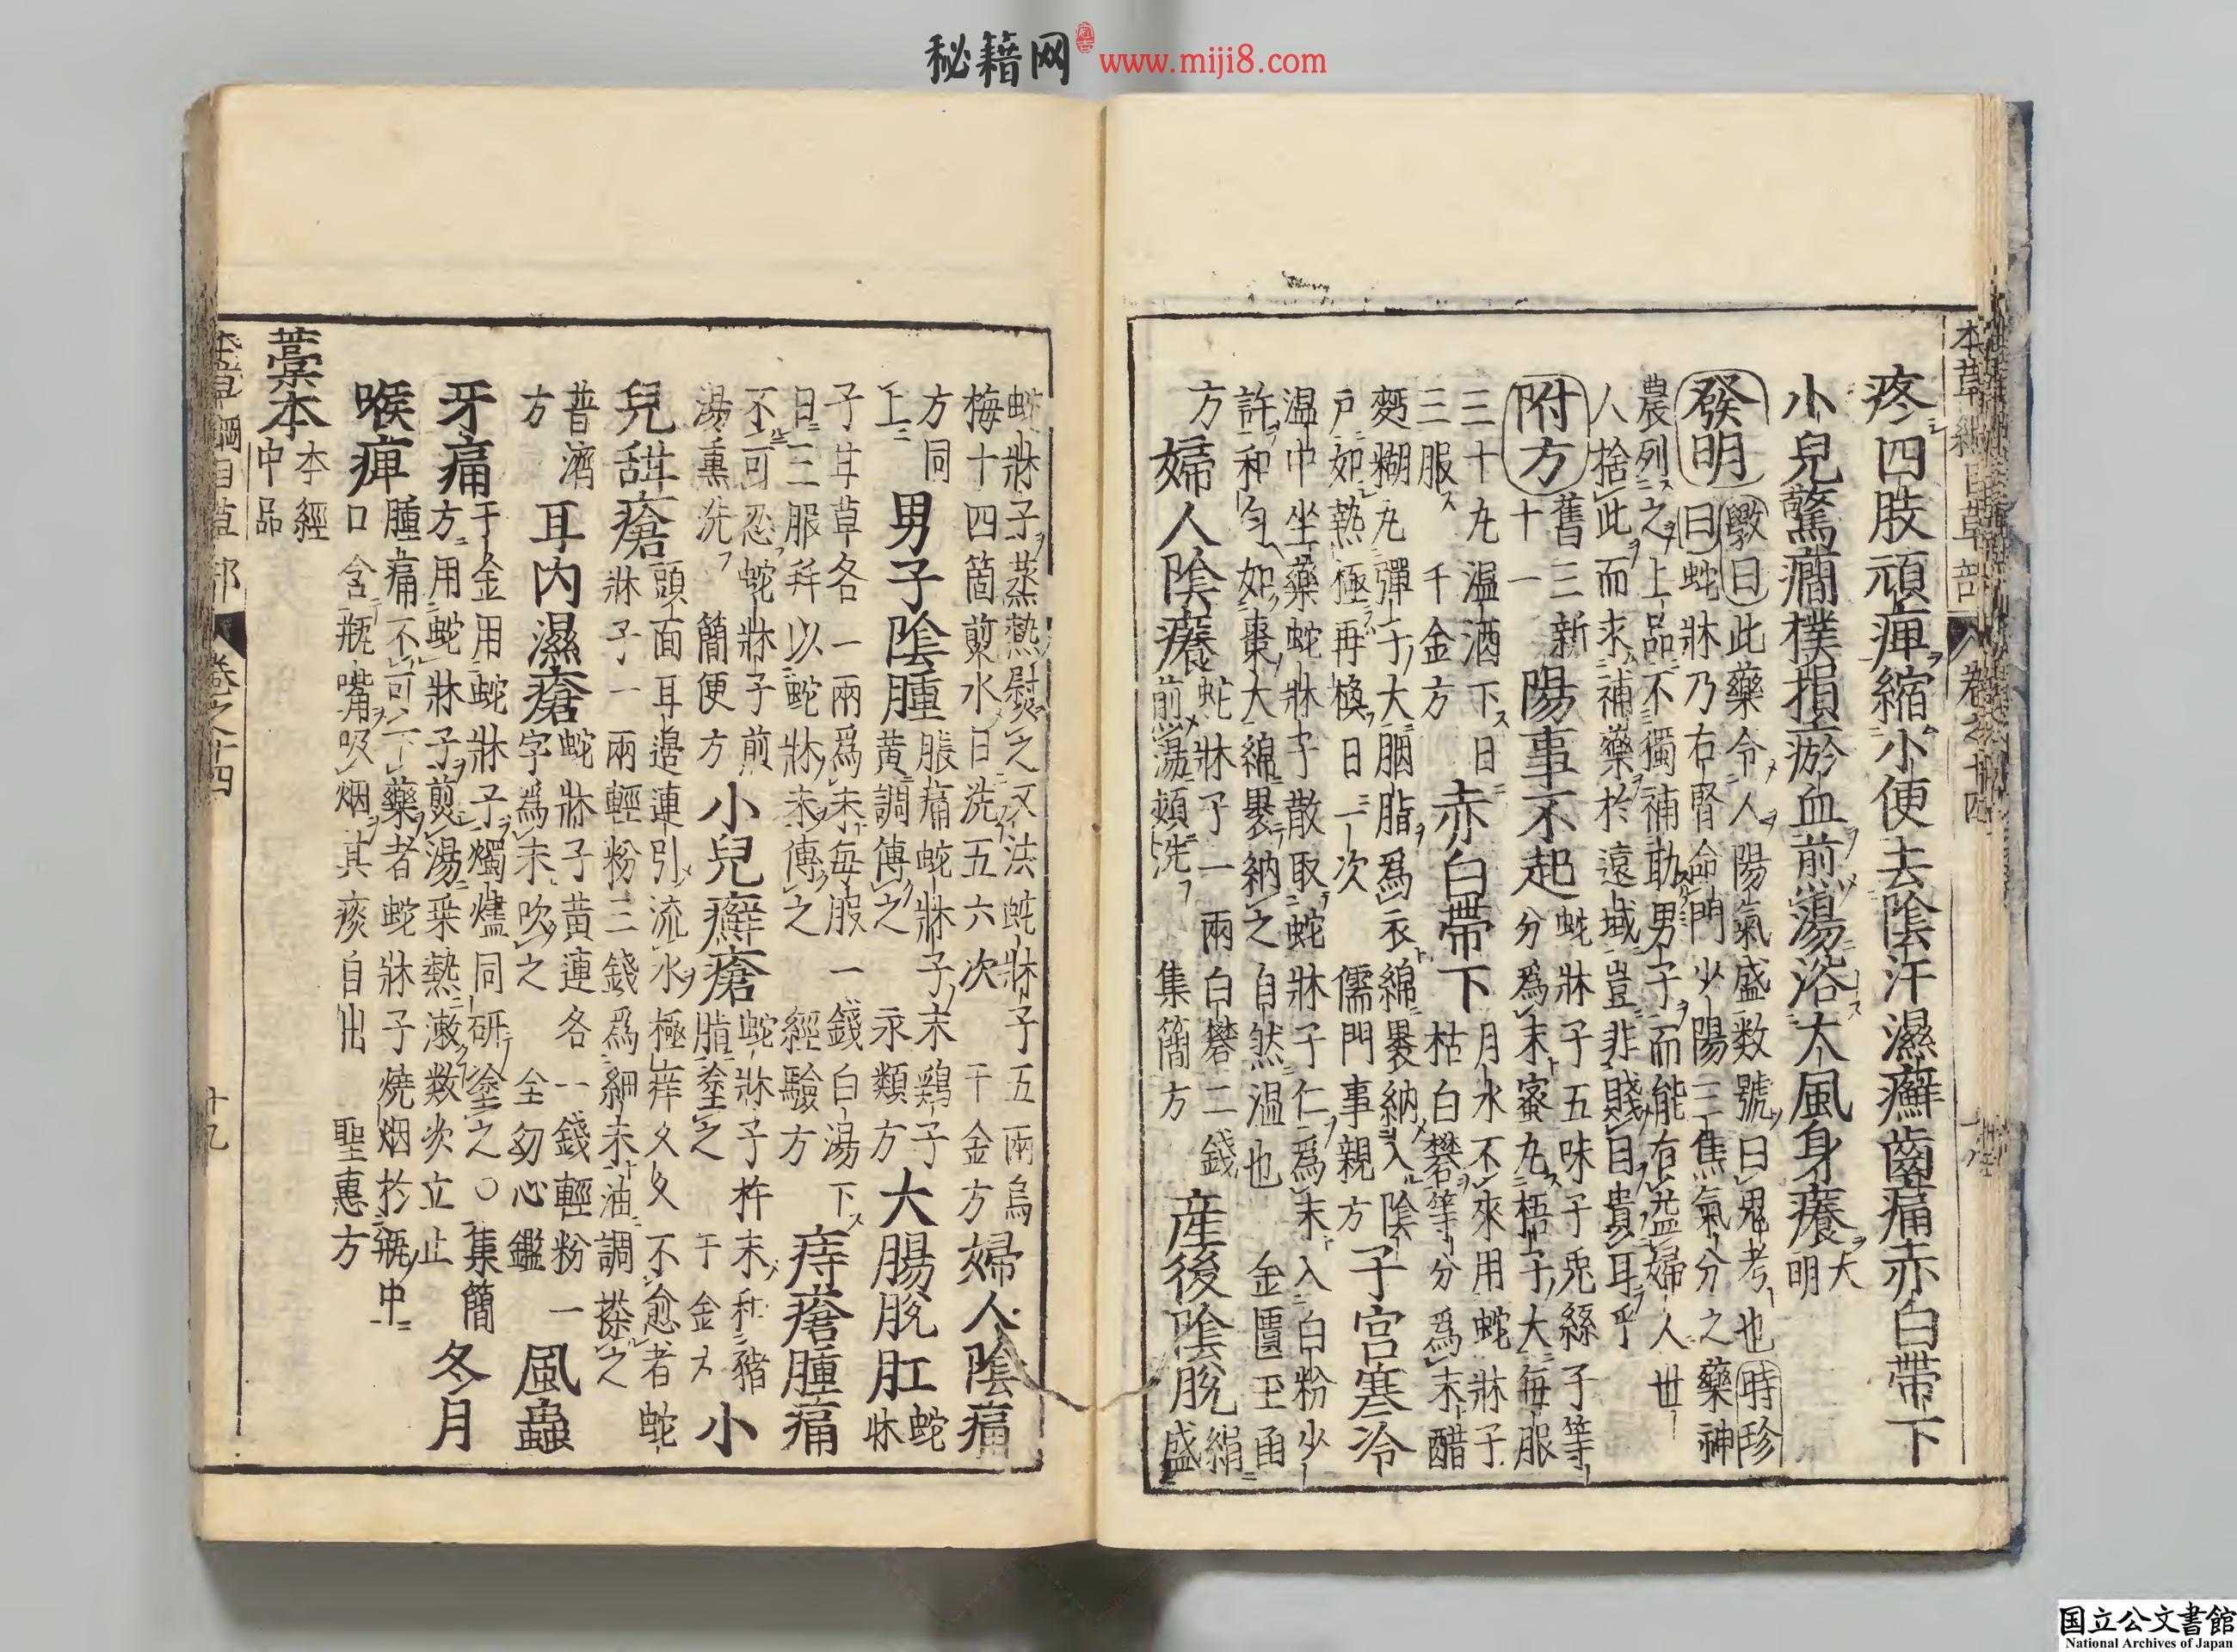 秘籍网 www.miji8.com
本草綱目草部 卷之十四
疼四肢頑痺縮小便去陰汗濕癬齒痛赤白帶下
小兒驚癇撲損瘀血煎湯浴大風身癢大明
發明 斆曰此藥令人陽氣盛数號曰鬼考也時珍
曰蛇牀乃右腎命門少陽三焦氣分之藥神
農列之上品不獨補助男子而能有益婦人世
人捨此而求補藥於遠域豈非賤目貴耳乎
附方 舊三新十一 陽事不起 蛇牀子五味子兎絲子等
分為末蜜丸梧子大每服
三十丸温酒下日
三服 千金方 赤白帶下 月水不來用蛇牀子
枯白礬等分為末醋
麪糊丸彈子大胭脂爲衣綿裹納入陰
戸如熱極再換日一次 儒門事親方 子宮寒冷
温中坐藥蛇牀子散取蛇牀子仁為末入白粉少
許和匀如棗大綿裹納之自然温也 金匱玉函
方 婦人陰癢 蛇牀子一兩白礬二錢
煎湯頻洗 集簡方 産後陰脫 絹盛
蛇牀子蒸熱熨之又法蛇牀子五兩烏
梅十四箇煎水日洗五六次 千金方 婦人陰痛
方同上 男子陰腫 脹痛蛇牀子末鷄子
黄調傅之 永類方 大腸脫肛 蛇牀
子甘草各一兩爲末每服一錢白湯下
日三服并以蛇牀末傅之 經驗方 痔瘡腫痛
不可忍蛇牀子煎
湯熏洗 簡便方 小兒癬瘡 蛇牀子杵末和豬
脂塗之 千金方 小
兒甜瘡 頭面耳邉連引流水極痒久久不愈者蛇
牀子一兩輕粉三錢為細末油調搽之
普濟方 耳内濕瘡 蛇牀子黄連各一錢輕粉一
字爲末吹之 全匆心鑑 風蟲
牙痛 千金用蛇牀子燭燼同研塗之〇集簡
方用蛇牀子煎湯乗熱漱数次立止 冬月
喉痺 腫痛不可下藥者蛇牀子燒烟於瓶中
口含瓶嘴吸烟其痰自出 聖惠方
藁本 本經中品
本草綱目草部 卷之十四 十九
国立公文書館
National Archives of Japan